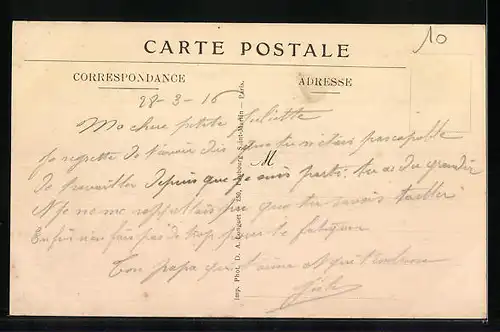 10
CARTE POSTALE
CORRESPONDANCE
ADRESSE
28-3-16
Ma chere petite Juliette
Je regrette de t'avoir dis que tu n'etais pas capable
M
de travailler depuis que je suis parti. tu as du grandir
Je ne me rappellais pas que tu savais tailler
Enfin n'en fais pas de trop pour te fatiguer
Ton papa qui t'aime
Jules
Imp. Phot. D. A. Longuet — 250, Faubourg Saint-Martin — Paris.